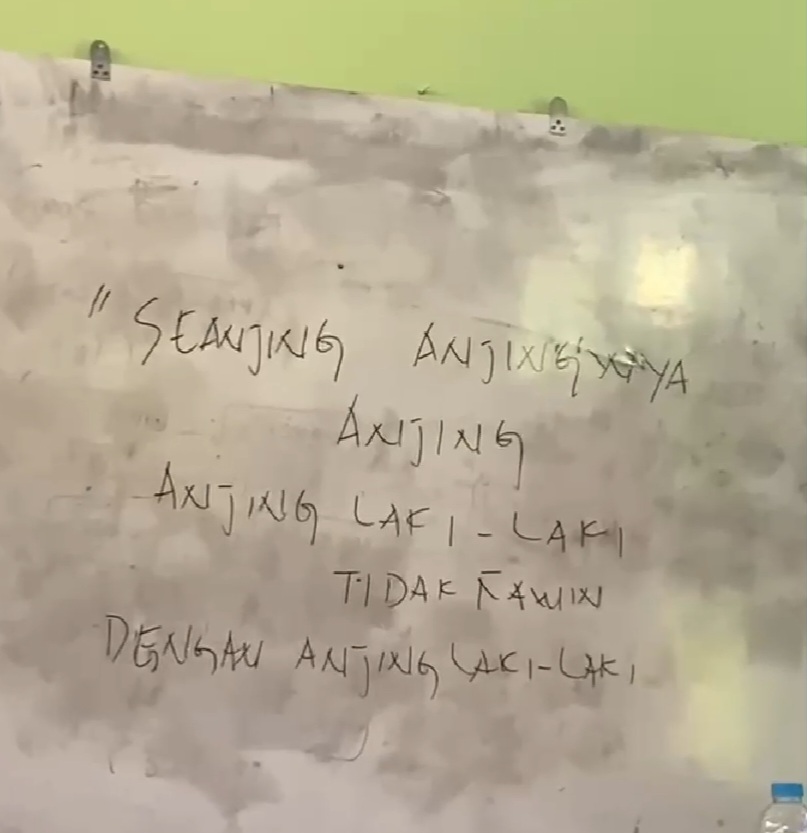 " SEANJING ANJINGNYA
ANJING
ANJING LAKI-LAKI
TIDAK KAWIN
DENGAN ANJING LAKI-LAKI